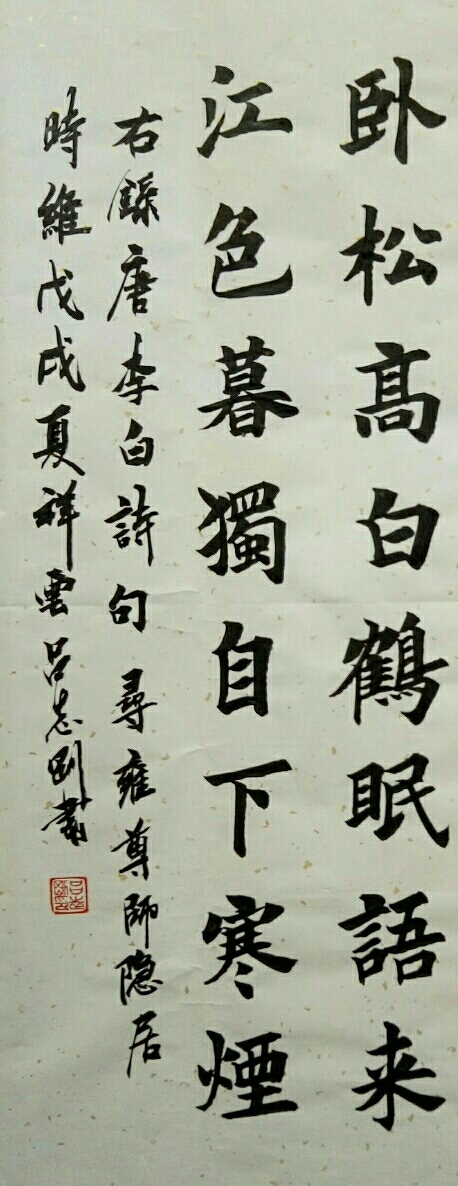 卧松高白鶴眠語来
江色暮獨自下寒煙
右錄唐李白詩句 尋雍尊師隐居
時維戊戌夏祥雲呂志剛書